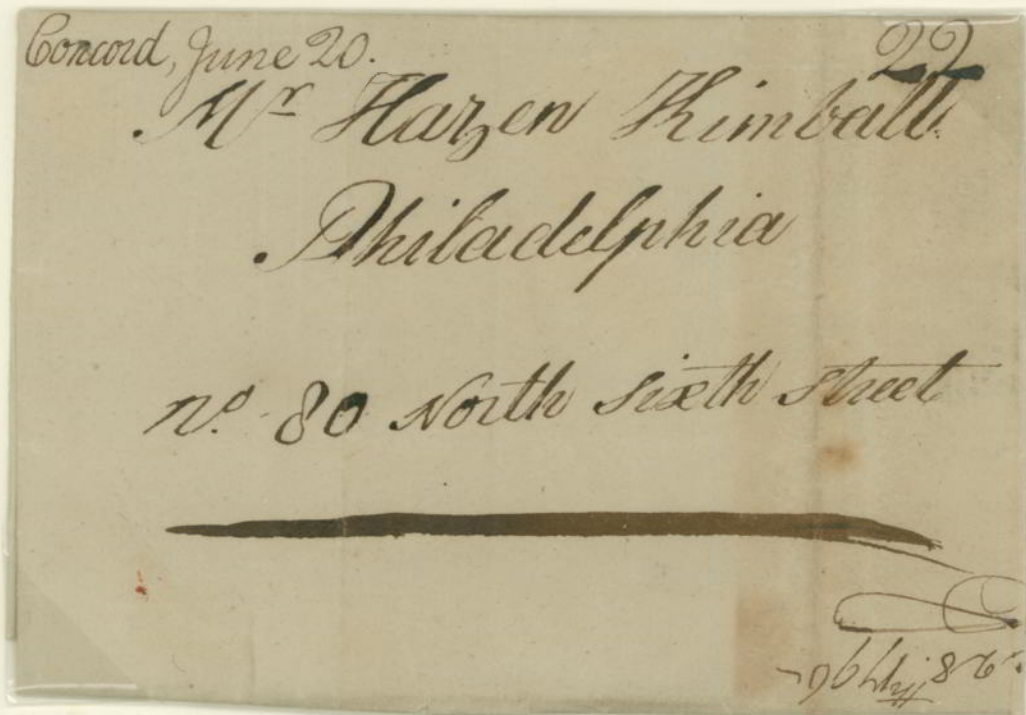 Concord, June 20.
22
Mr Hazen Kimball
Philadelphia
No. 80 North Sixth Street